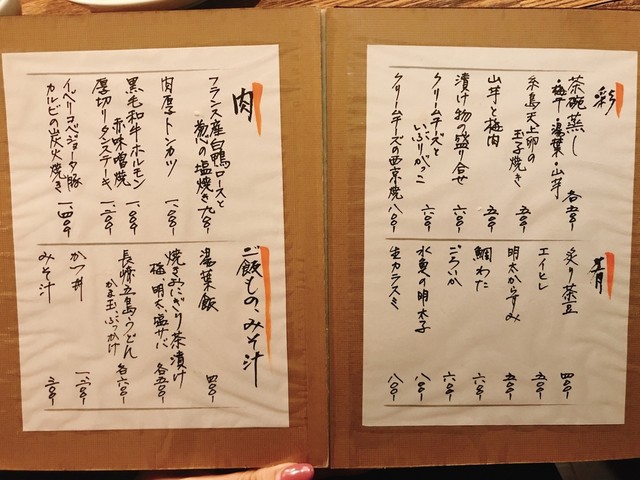 彩
茶碗蒸し
・梅干・湯葉・山芋 各五〇〇-
糸島天上卵の
玉子焼き 五〇〇-
山芋と梅肉 五〇〇-
漬け物の盛り合せ 六〇〇-
クリームチーズと
いぶりがっこ 六〇〇-
クリームチーズの西京焼 八〇〇-
肴
炙り茶豆 四〇〇-
エイヒレ 五〇〇-
明太からすみ 五〇〇-
鯛わた 六〇〇-
ごろいか 六〇〇-
水魚の明太子 八〇〇-
生カラスミ 八〇〇-
肉
フランス産白鴨ロースと
葱の塩焼き 九〇〇-
肉厚トンカツ 一、〇〇〇-
黒毛和牛ホルモン
赤味噌焼 一、〇〇〇-
厚切りタンステーキ 一、二〇〇-
イベリコベジョータ豚
カルビの炭火焼き 一、四〇〇-
ご飯もの、みそ汁
湯葉飯 四〇〇-
焼きおにぎり茶漬け
梅 明太 塩サバ 各五〇〇-
長崎五島うどん
かま玉 ぶっかけ 各六〇〇-
かつ丼 一、二〇〇-
みそ汁 三〇〇-